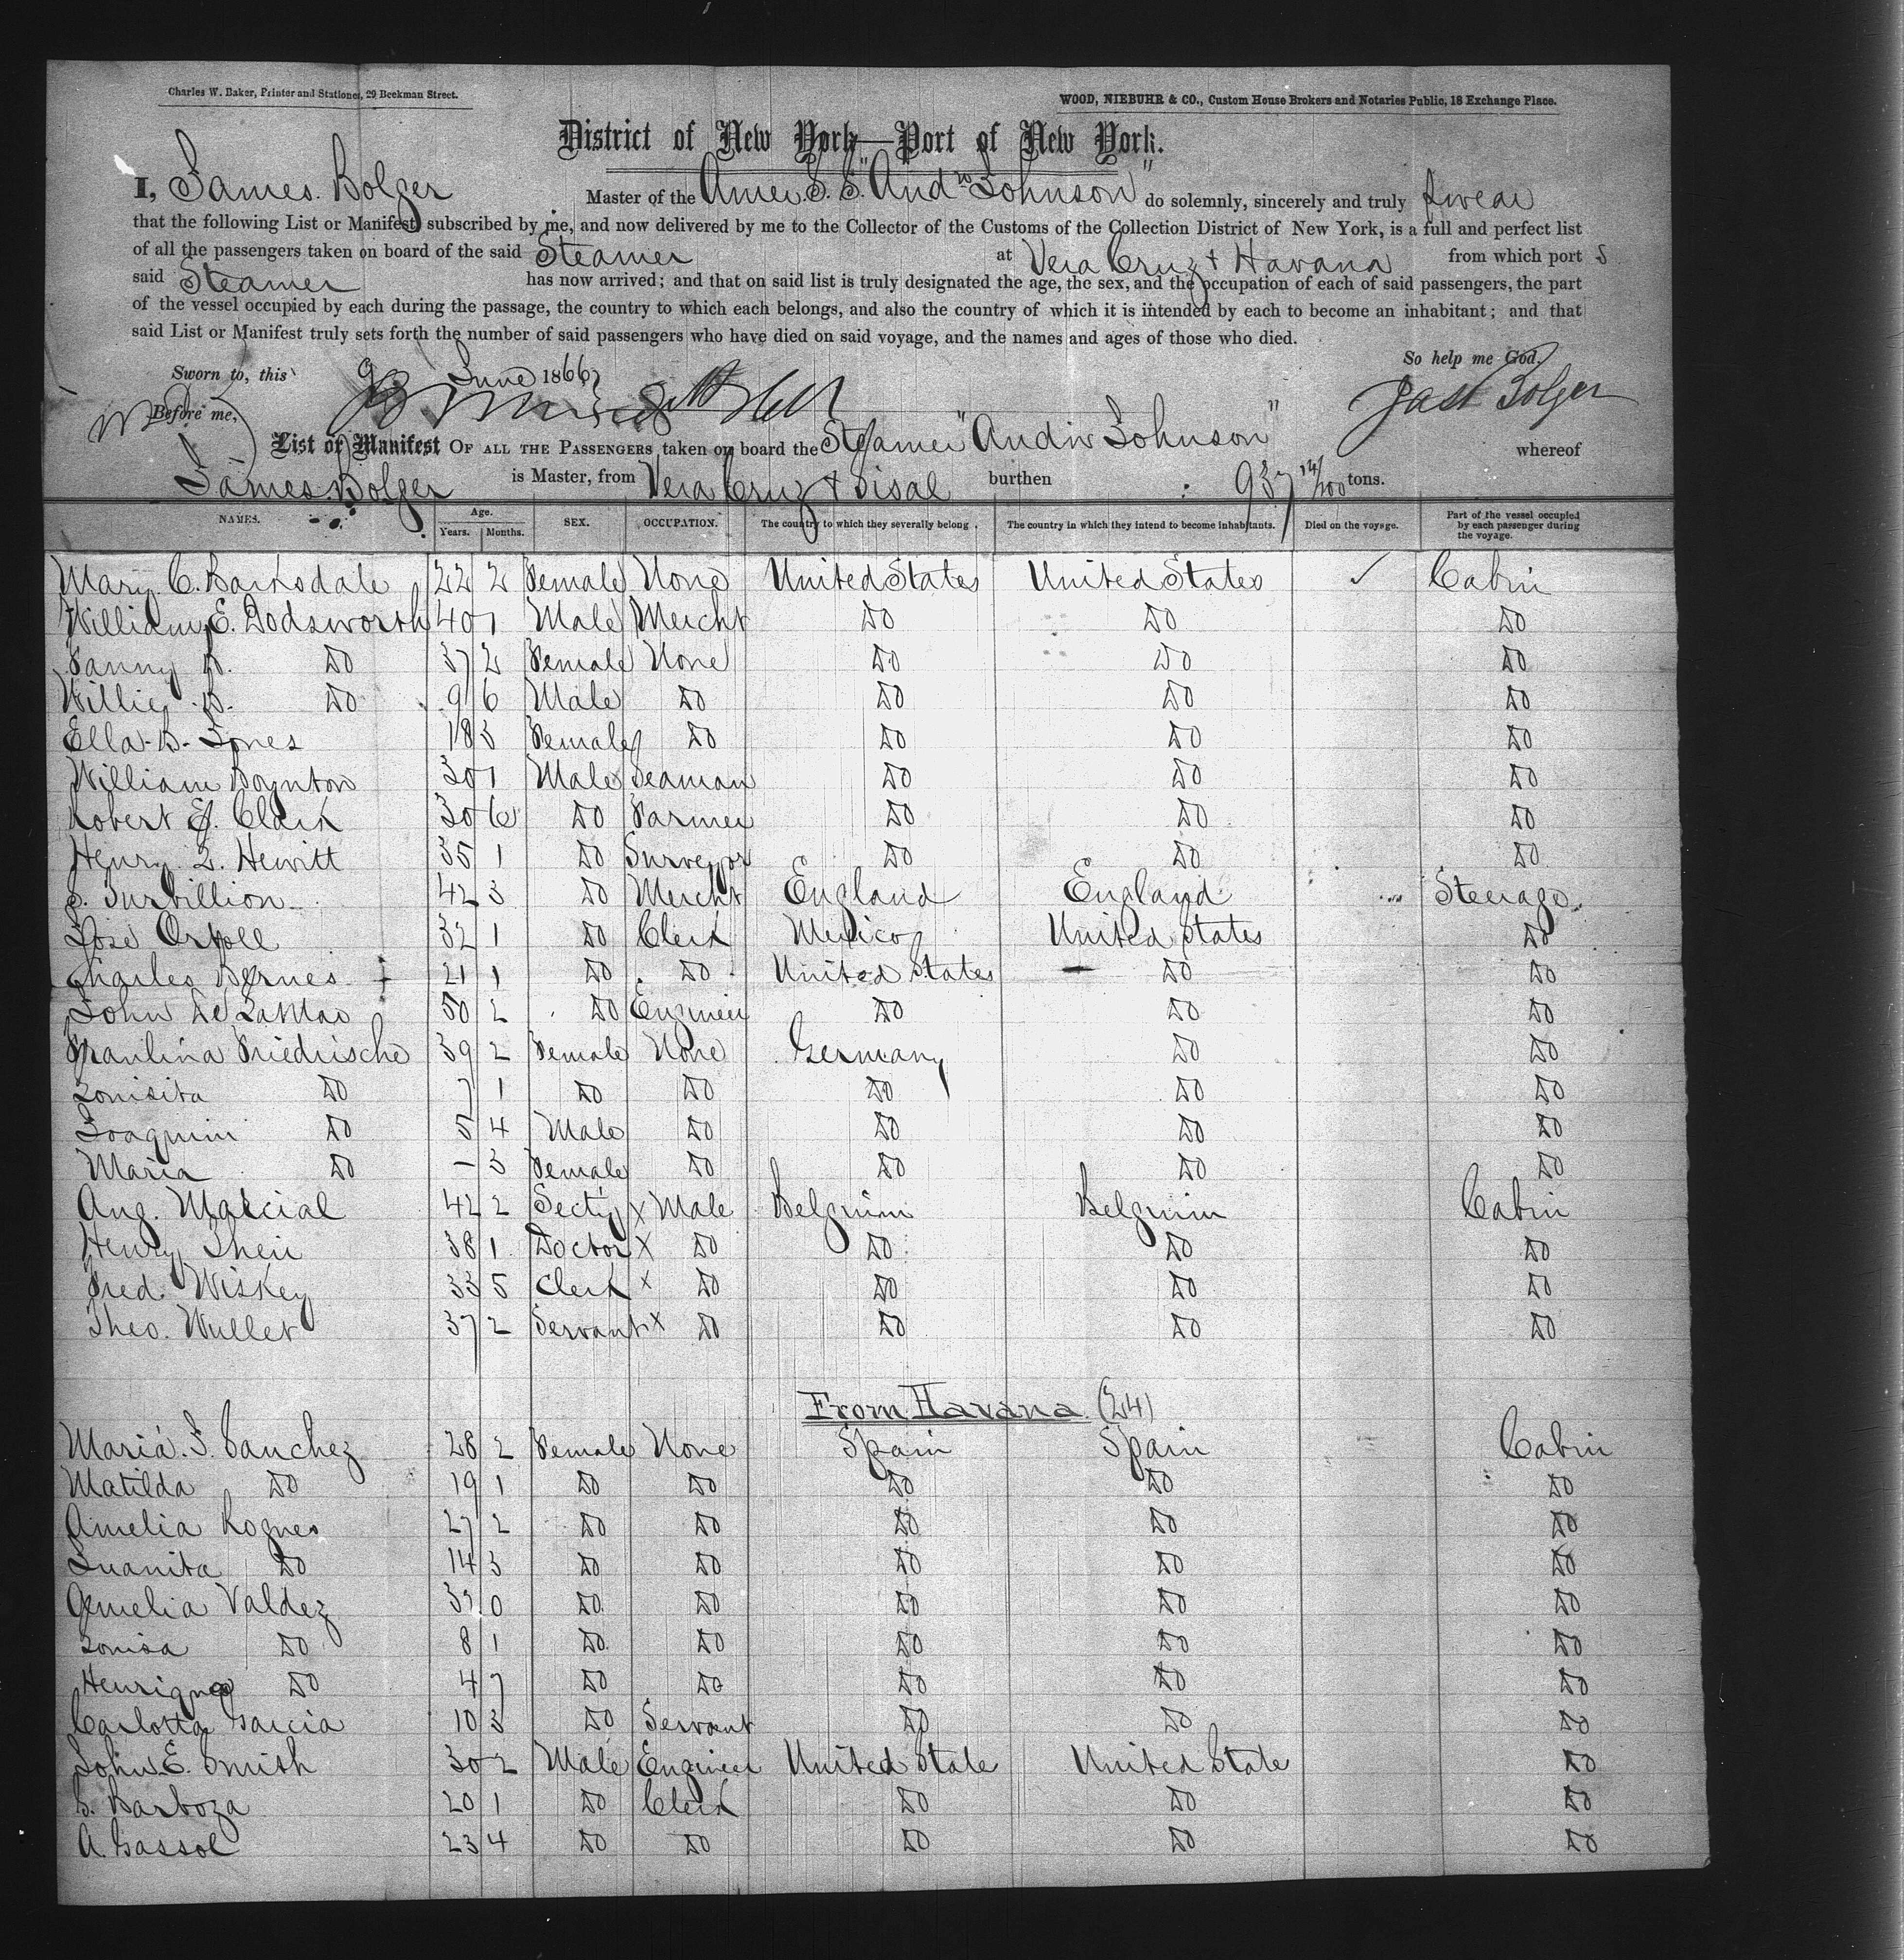 Charles W. Baker, Printer and Stationer, 29 Beekman Street.
WOOD, NIEBUHR & CO., Custom House Brokers and Notaries Public, 18 Exchange Place.
District of New York—Port of New York.
I, James Bolger Master of the Amer. S. S. "Andw Johnson" do solemnly, sincerely and truly swear
that the following List or Manifest, subscribed by me, and now delivered by me to the Collector of the Customs of the Collection District of New York, is a full and perfect list
of all the passengers taken on board of the said Steamer at Vera Cruz + Havana from which port s
said Steamer has now arrived; and that on said list is truly designated the age, the sex, and the occupation of each of said passengers, the part
of the vessel occupied by each during the passage, the country to which each belongs, and also the country of which it is intended by each to become an inhabitant; and that
said List or Manifest truly sets forth the number of said passengers who have died on said voyage, and the names and ages of those who died.
So help me God,
Sworn to, this 9 June 1866
Before me, Jas Bolger
List or Manifest OF ALL THE PASSENGERS taken on board the Steamer "Andw Johnson" whereof
James Bolger is Master, from Vera Cruz + Sisal burthen 937 14/100 tons.
NAMES. Age. Years. Months. SEX. OCCUPATION. The country to which they severally belong. The country in which they intend to become inhabitants. Died on the voyage. Part of the vessel occupied by each passenger during the voyage.
Mary C. Barksdale 22 2 Female None United States United States ✓ Cabin
William E. Dodsworth 40 1 Male Mercht Do Do Do
Fanny B. Do 37 2 Female None Do Do Do
Willie B. Do 9 6 Male Do Do Do Do
Ella B. Jones 18 3 Female Do Do Do Do
William Boynton 30 1 Male Seaman Do Do Do
Robert E. Clark 30 6 Do Farmer Do Do Do
Henry L. Hewitt 35 1 Do Surveyor Do Do Do
S. Turbillion 42 3 Do Mercht England England Steerage
Jose Ortoll 32 1 Do Clerk Mexico United States Do
Charles Bernes 21 1 Do Do United States Do Do
John De LaMar 50 2 Do Engineer Do Do Do
Paulina Friedrische 39 2 Female None Germany Do Do
Louisita Do 7 1 Do Do Do Do Do
Joaquin Do 5 4 Male Do Do Do Do
Maria Do – 3 Female Do Do Do Do
Aug. Marcial 42 2 Secty x Male Belgium Belgium Cabin
Henry Theis 38 1 Doctor x Do Do Do Do
Fred. Wiskey 33 5 Clerk x Do Do Do Do
Theo. Wuller 37 2 Servant x Do Do Do Do
From Havana (24)
Maria J. Sanchez 28 2 Female None Spain Spain Cabin
Matilda Do 19 1 Do Do Do Do Do
Amelia Rognes 27 2 Do Do Do Do Do
Juanita Do 14 3 Do Do Do Do Do
Amelia Valdez 37 0 Do Do Do Do Do
Louisa Do 8 1 Do Do Do Do Do
Do 4 7 Do Do Do Do Do
Carlotta Garcia 10 3 Do Servant Do Do Do
John E. Smith 30 2 Male Engineer United State United State Do
S. Barboza 20 1 Do Clerk Do Do Do
A. Gassol 23 4 Do Do Do Do Do